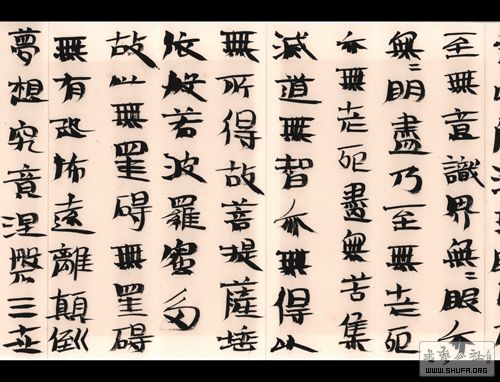 至無意識界無〻明亦
無〻明盡乃至無老死
亦無老死盡無苦集
滅道無智亦無得以
無所得故菩提薩埵
依般若波羅蜜多
故心無罣碍無罣碍
無有恐怖遠離顛倒
夢想究竟涅槃三世
WWW.SHUFA.ORG